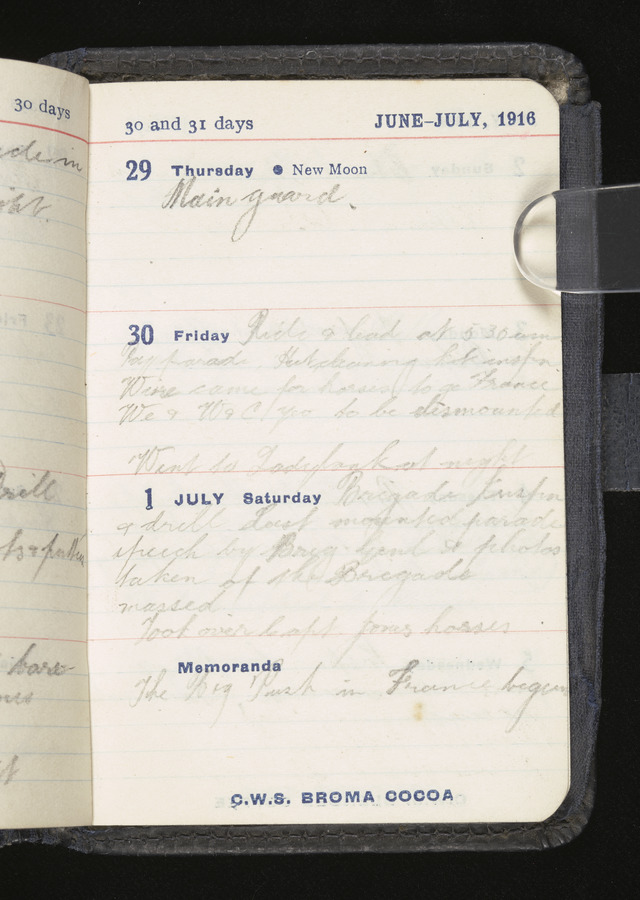 30 days
30 and 31 days
JUNE–JULY, 1916
29 Thursday ● New Moon
Main guard.
30 Friday Ride & lead at 5 30 am
parade, Hut cleaning kit inspn
Wire came for horses to go France
We & W & C Yeo to be dismounted
Went to Ladybank at night
1 JULY Saturday Brigade Inspn
& drill Last mounted parade
speech by Brig Genl & photos
taken of the Brigade
massed
Took over Capt. horses
Memoranda
The Big Push in France begun
C.W.S. BROMA COCOA
drill